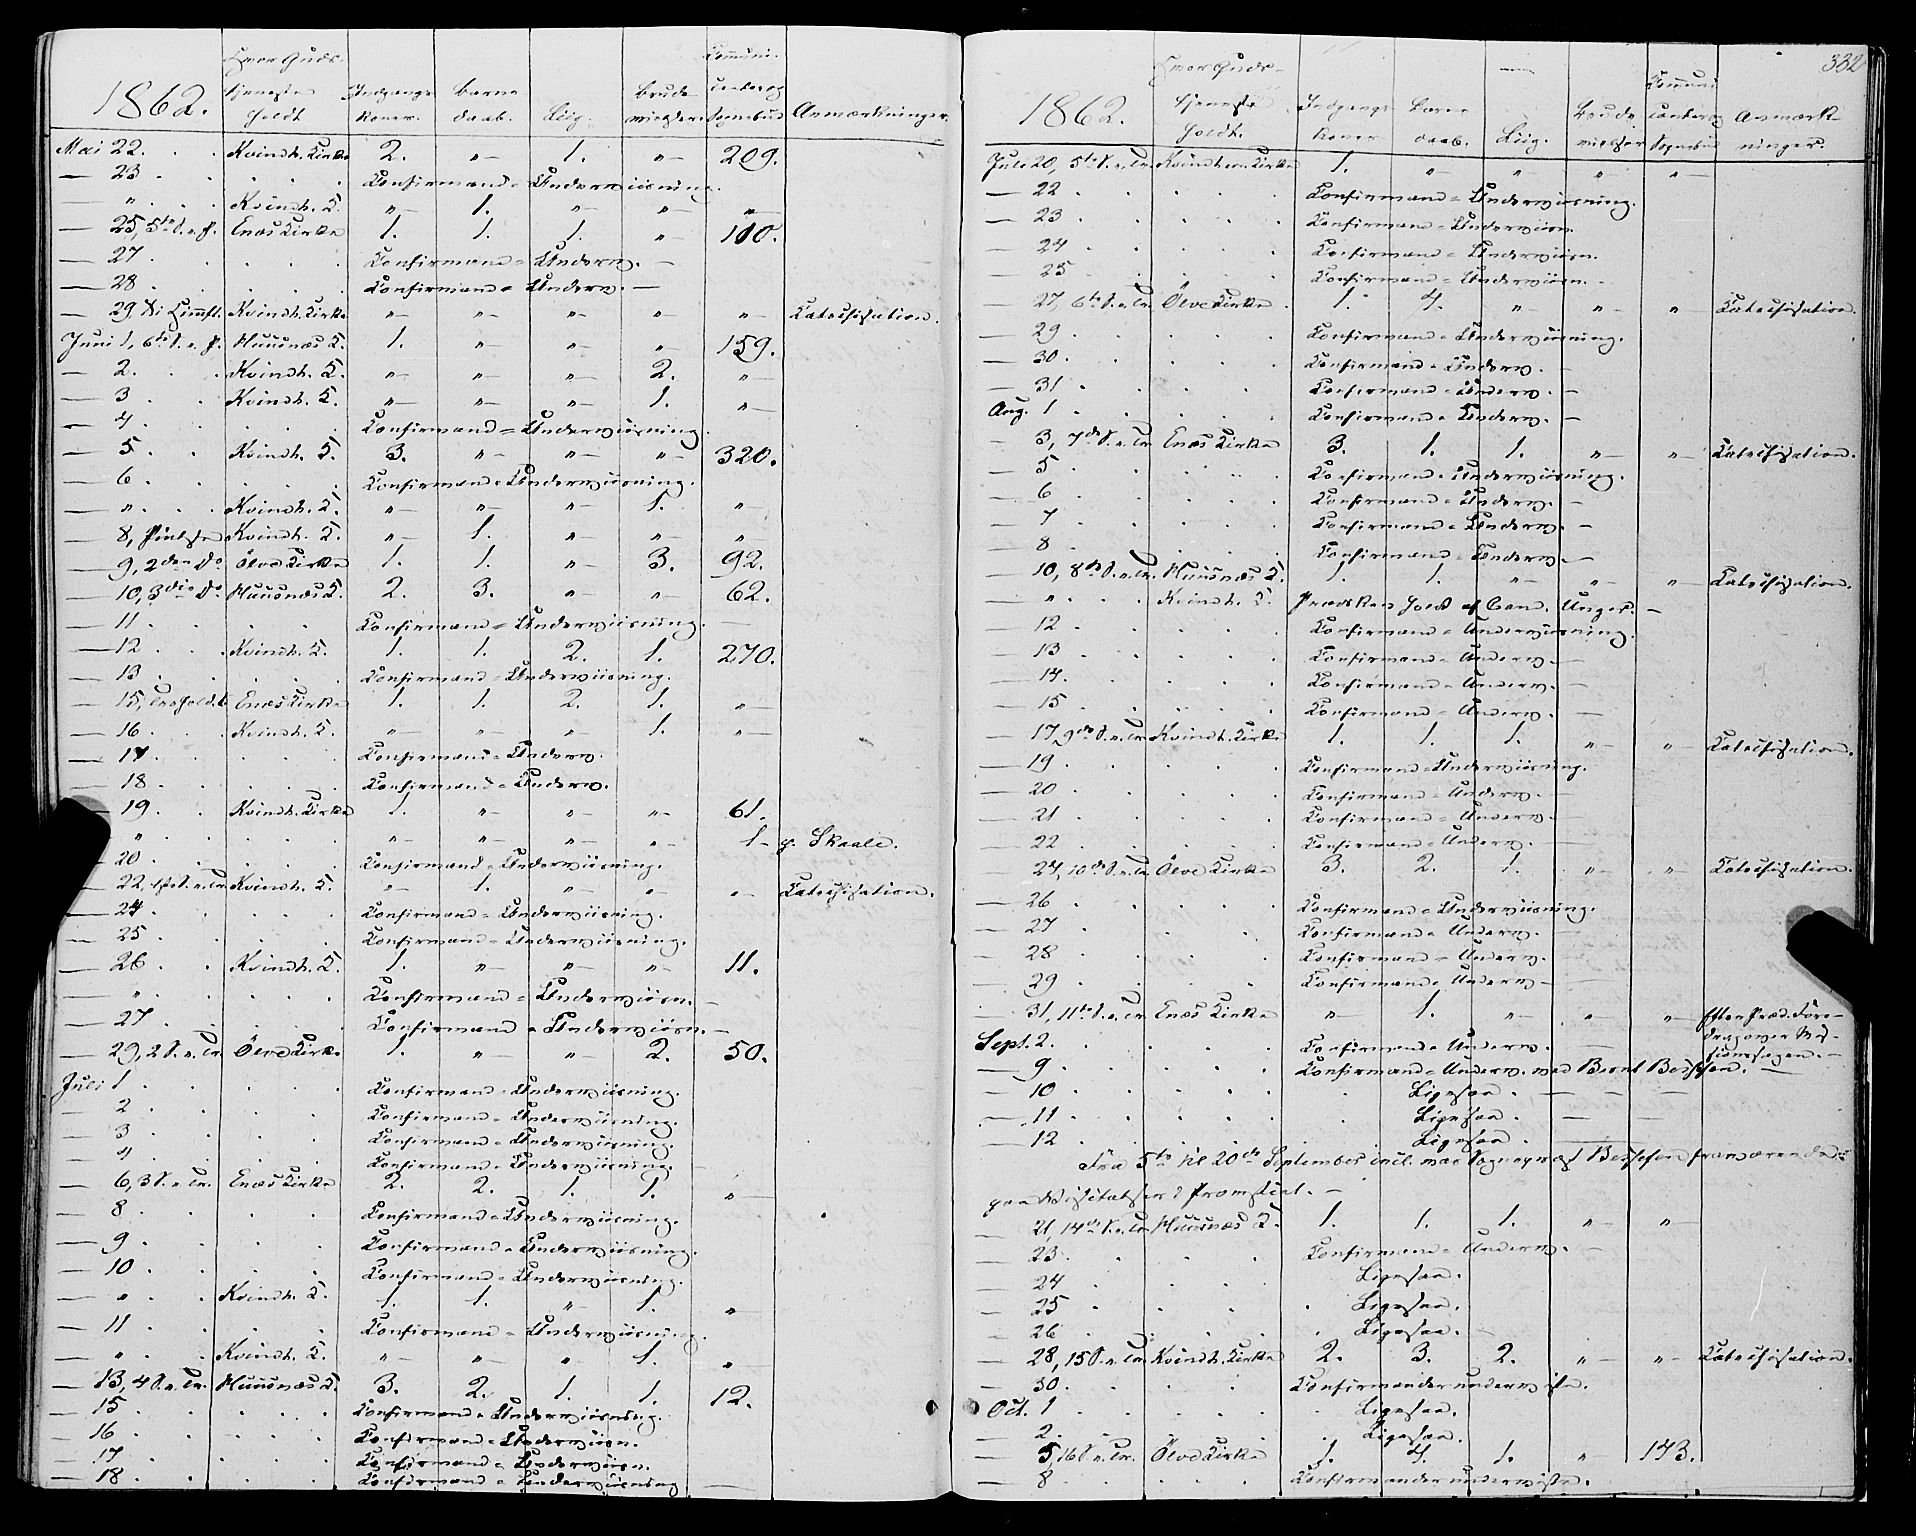 1862. Hvor Guds- tjeneste holdt Indgangs- koner. Barne daab. Liig. Brude vielser. Communi- canter og Sognebud Anmærkninger.
Mai 22. . . Kvindh. Kirke 2. „ 1. „ 209.
— 23 . . . . Confirmand-Underviisning.
— „ . . Kvindh. K. „ 1. „ „ „
— 25, 5te S. e. P. Enæs Kirke 1. 1. 1. „ 110.
— 27 . . . . Confirmand-Underv. —
— 28 . . . . Confirmand-Underv. —
— 29 Xi Himft. Kvindh. Kirke „ „ „ „ „ Catechisation.
Juni 1, 6te S. e. P. Huusnæs K. 1. „ „ „ 159.
— 2. . . Kvindh. K. „ „ „ 2. „
— 3 . . Kvindh. K. „ „ „ 1. „
— 4 . . . . Confirmand-Underviisning.
— 5 . . Kvindh. K. 3. „ „ „ 320.
— 6 . . . . Confirmand-Underviisning.
— „ . . Kvindh. K. „ „ „ 1. „
— 8, Pintse Kvindh. K. „ 1. „ „ „
— 9, 2den Do Ölve Kirke 1. 1. „ 3. 92.
— 10, 3die Do Huusnæs K. 2. 3. „ „ 62.
— 11 . . . . Confirmand-Underviisning. —
— 12 . . Kvindh. K. 1. 1. 2. 1. 270.
— 13 . . . . Confirmand-Underviisning.
— 15, Trefold. Enæs Kirke 1. 1. 2. 1. „
— 16 . . Kvindh. K. „ „ „ 1. „
— 17 . . . . Confirmand-Underv.
— 18 . . . . Confirmand-Underv.
19 . . Kvindh. Kirke 1. „ „ „ 61.
„ . . . . „ „ „ „ 1 p. Skaale.
20 . . . . Confirmand-Underviisning.
22, 1ste S. e. Tr. Kvindh. K. „ 1. „ „ „ Catechisation.
— 24 . . . . Confirmand-Underviisning.
— 25 . . . . Confirmand-Underviisning.
— 26 . . Kvindh. K. 1. „ „ „ 11.
— „ . . . . Confirmand-Underviisn. —
— 27 . . . . Confirmand-Underviisn. —
— 29, 2 S. e. Tr. Ölve Kirke 1. „ „ 2. 50.
Juli 1 . . . . Confirmand-Underviisning.
— 2 . . . . Confirmand-Underviisning.
— 3 . . . . Confirmand-Underviisning.
— 4 . . . . Confirmand-Underviisning.
— 6, 3 S. e. Tr. Enæs Kirke 2. 2. 1. 1. „
— 8 . . . . Confirmand-Underviisning.
— 9 . . . . Confirmand-Underviisning.
— 10 . . . . Confirmand-Underviisning.
— „ . . Kvindh. K. 1. 1. „ 1. „
— 11 . . . . Confirmand-Underviisning.
— „ . . Kvindh. K. „ „ „ 1. „
— 13, 4 S. e. Tr. Huusnæs K. 3. 2. 1. 1. 12.
— 15 . . . . Confirmand-Underviisning.
— 16 . . . . Confirmand-Underviisn.
— 17 . . . . Confirmand-Underviisn.
— 18 . . . . Confirmand-Underviisning —
332
1862. Hvor Guds- tjeneste holdt. Indgangs- koner Barne daab. Liig. Brude vielser Communi canter og Sognebud Anmærk- ninger.
Juli 20, 5te S. e. Tr. Kvindherr. Kirke 1. „ „ „ „
— 22 . . . . Confirmand-Underviisning.
— 23 . . . . Confirmand-Underviisn.
— 24 . . . . Confirmand-Underviisn.
— 25 . . . . Confirmand-Underviisn. —
— 27, 6te S. e. Tr. Ölve Kirke 1. 4. „ „ „ Catechisation.
— 29 . . . . Confirmand-Underviisning.
— 30 . . . . Confirmand-Underv. —
— 31 . . . . Confirmand-Underv. —
Aug. 1 . . . . Confirmand-Underv. —
— 3, 7de S. e. Tr. Enæs Kirke 3. 1. 1. „ „ Catechisation.
— 5 . . . . Confirmand-Underviisning.
— 6 . . . . Confirmand-Underv. —
— 7 . . . . Confirmand-Underv. —
— 8 . . . . Confirmand-Underv. —
— 10, 8de S. e. Tr. Huusnæs K. 1. 1. „ „ „ Catechisation.
— „ . . Kvindh. K. Prædiken holdt af Cand. Unger. —
— 12 . . . . Confirmand-Underviisning.
— 13 . . . . Confirmand-Underv. —
— 14 . . . . Confirmand-Underv. —
— 15 . . . . Confirmand-Underv. —
— 17, 9de S. e. Tr. Kvindh. Kirke 1. 1. 1. „ „ Catechisation.
— 19 . . . . Confirmand-Underviisning.
— 20 . . . . Confirmand-Underv. —
— 21 . . . . Confirmand-Underv. —
— 22 . . . . Confirmand-Underv. —
— 24, 10de S. e. Tr. Ölve Kirke 3. 2. 1. „ „ Catechisation.
— 26 . . . . Confirmand-Underviisning.
— 27 . . . . Confirmand-Underv. —
— 28 . . . . Confirmand-Underv.
— 29 . . . . Confirmand-Underv —
— 31, 11te S. e. Tr. Enæs Kirke „ 1. „ „ „ Efter Præd. Fore-
drag over Mis-
sionssagen. —
Sept. 2. . . . . Confirmand-Underv. —
— 9 . . . . Confirmand-Underv. ved Bernt Bessesen. —
— 10 . . . . Ligesaa. —
— 11 . . . . Ligesaa. —
— 12 . . . . Ligesaa. —
Fra 5te til 20de September incl. var Sognepræst fraværende
paa Visitatser i Provstiet. —
— 21, 14de S. e. Tr. Huusnæs K. 1. 1. 1. „ „
— 23 . . . . Confirmand-Underv. —
— 24 . . . . Ligesaa.
— 25 . . . . Ligesaa.
— 26 . . . . Ligesaa. —
— 28, 15 S. e. Tr. Kvindh. Kirke 2. 3. 2. „ „ Catechisation.
— 30 . . . . Confirmander underviste.
Oct. 1 . . . . Ligesaa.
— 2. . . . . Ligesaa.
— 5, 16 S. e. Tr. Ölve Kirke 1. 4. 1. „ 143.
— 8 . . . . Confirmander underviste.